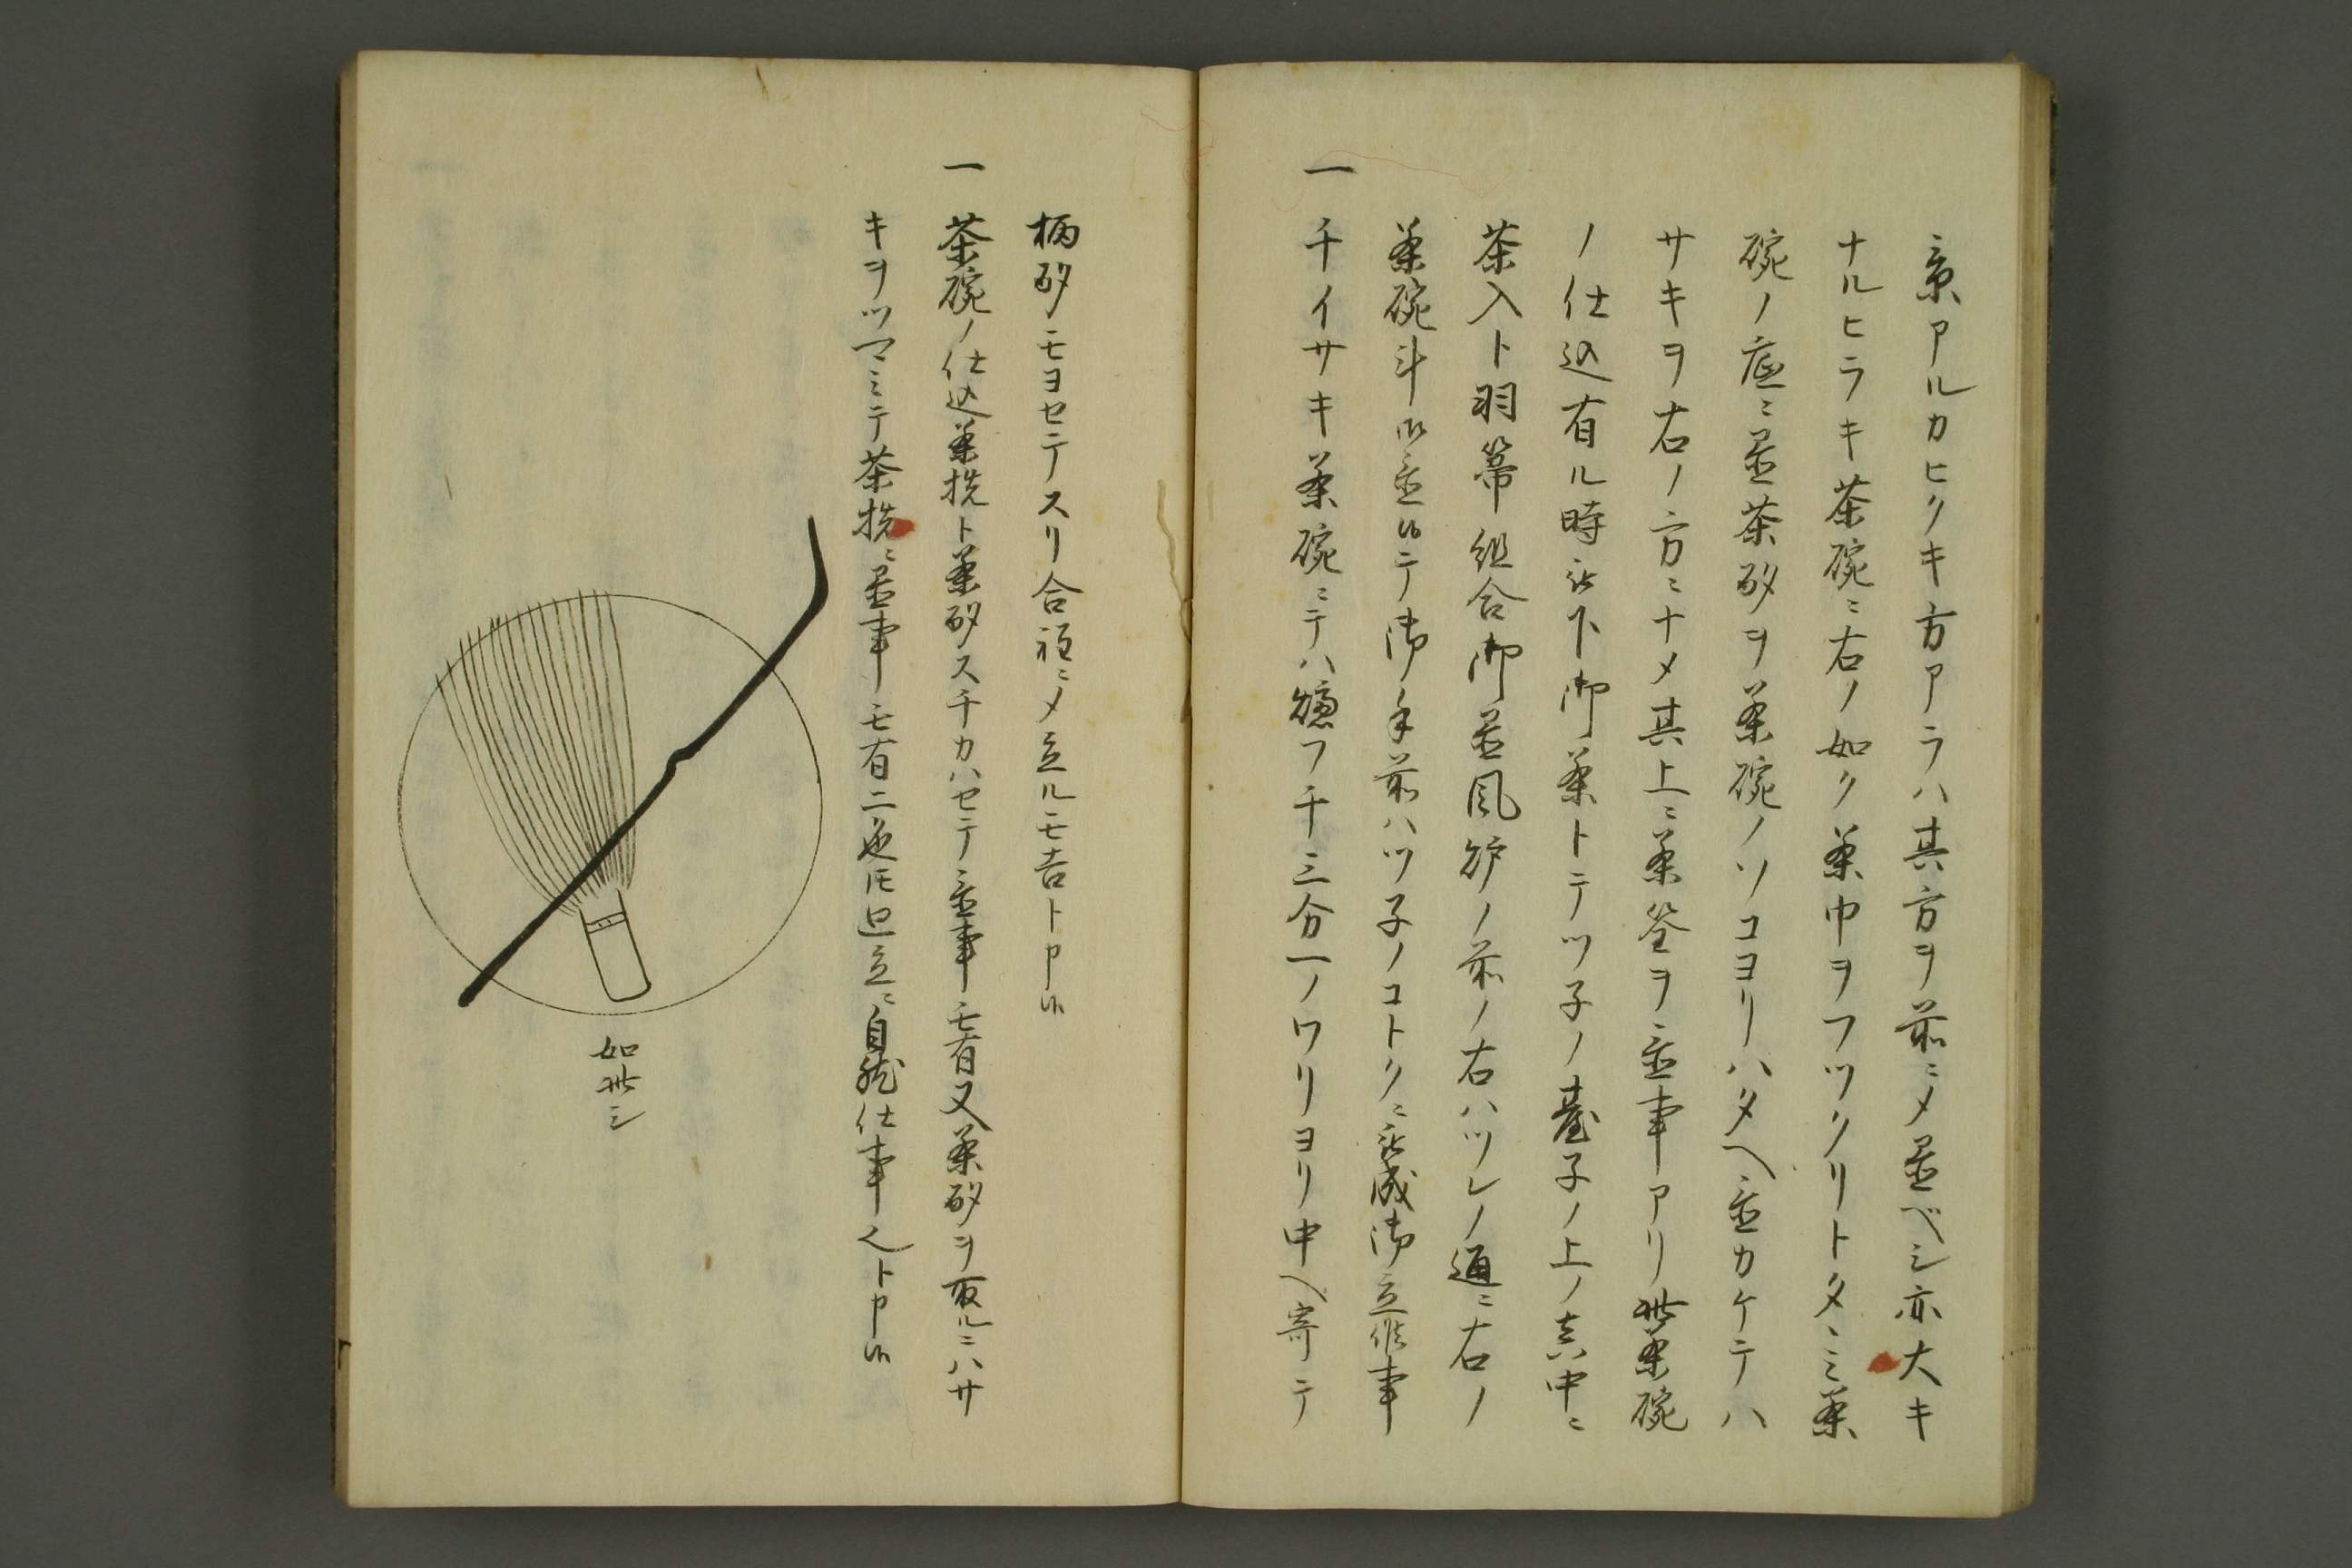 景アルカヒクキ方アラハ其方ヲ前ニメ置ベシ亦大キ
ナルヒラキ茶碗ニ右ノ如ク茶巾ヲフツクリトタヽミ茶
碗ノ底ニ置茶杓ヲ茶碗ノソコヨリハタヘ置カケテハ
サキヲ右ノ方ニナメ其上ニ茶筌ヲ置事アリ此茶碗
ノ仕込有ル時被下御茶トテツ子ノ臺子ノ上ノ真中ニ
茶入ト羽箒組合御置風炉ノ前ノ右ハツレノ通ニ右ノ
茶碗斗御置候テ御手前ハツ子ノコトクニ被成御立候事
一 チイサキ茶碗ニテハ穂フチ三分一ノワリヨリ中ヘ寄テ
柄杓モヨセテスリ合程ニメ立ルモ吉ト申候
一 茶碗ノ仕込茶筅ト茶杓スチカハセテ置事モ有又茶杓ヲ取ルニハサ
キヲツマミテ茶筅ニ置事モ有二色圧皀立ニ自然仕事也ト申候
如此シ